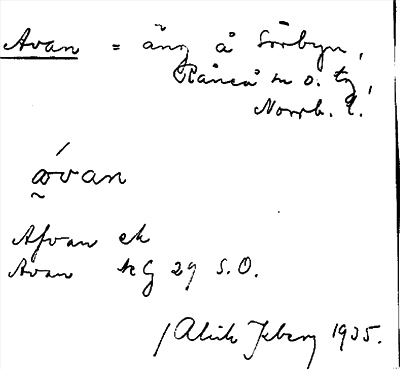 Avan = äng å Sörbyn,
Råneå sn o. tg,
Norrb. l.
a̰óvan
Afvan ek
Avan kG 29 S.O.
/ Alrik Isberg 1935.